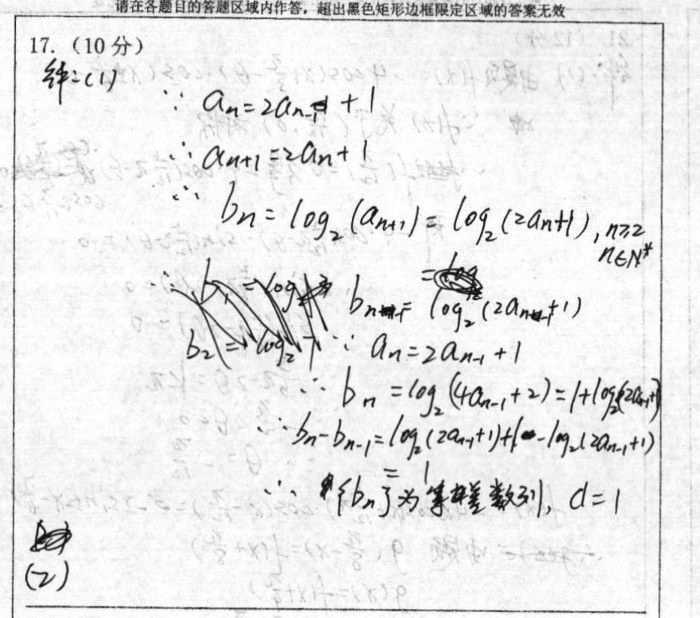 请在各题目的答题区域内作答，超出黑色矩形边框限定区域的答案无效
17.（10 分）
解：(1)
∵ aₙ=2aₙ₋₁+1
∴ aₙ₊₁=2aₙ+1
∴ bₙ=log₂(aₙ₊₁)=log₂(2aₙ+1), n≥2
n∈N*
bₙ₋₁=log₂(2aₙ₋₁+1)
∵ aₙ=2aₙ₋₁+1
∴ bₙ=log₂(4aₙ₋₁+2)=1+log₂(2aₙ₋₁+1)
∴ bₙ-bₙ₋₁=log₂(2aₙ₋₁+1)+1-log₂(2aₙ₋₁+1)
=1
∴ {bₙ}为等差数列, d=1
(2)